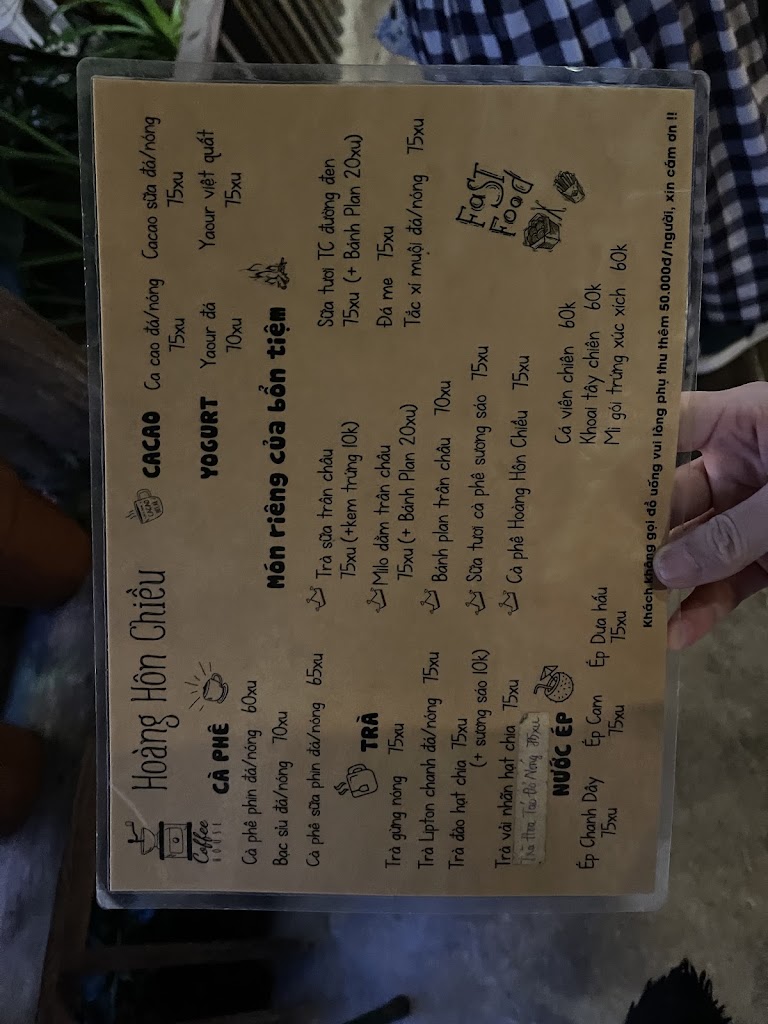 Coffee
HOUSE
Hoàng Hôn Chiều
CÀ PHÊ
Cà phê phin đá/nóng 60xu
Bạc sỉu đá/nóng 70xu
Cà phê sữa phin đá/nóng 65xu
TRÀ
Trà gừng nóng 75xu
Trà Lipton chanh đá/nóng 75xu
Trà đào hạt chia 75xu
(+ sương sáo 10k)
Trà vải nhãn hạt chia 75xu
Táo Đỏ Nóng 75xu
NƯỚC ÉP
Ép Chanh Dây Ép Cam Ép Dưa hấu
75xu 75xu 75xu
CACAO
Ca cao đá/nóng Cacao sữa đá/nóng
75xu 75xu
YOGURT
Yaour đá Yaour việt quất
70xu 75xu
Món riêng của bổn tiệm
Trà sữa trân châu
75xu (+kem trứng 10k)
Milo dầm trân châu
75xu (+ Bánh Plan 20xu)
Bánh plan trân châu 70xu
Sữa tươi cà phê sương sáo 75xu
Cà phê Hoàng Hôn Chiều 75xu
Sữa tươi TC đường đen
75xu (+ Bánh Plan 20xu)
Đá me 75xu
Tắc xí muội đá/nóng 75xu
FaST
FooD
Cá viên chiên 60k
Khoai tây chiên 60k
Mì gói trứng xúc xích 60k
Khách không gọi đồ uống vui lòng phụ thu thêm 50.000đ/người, xin cám ơn !!